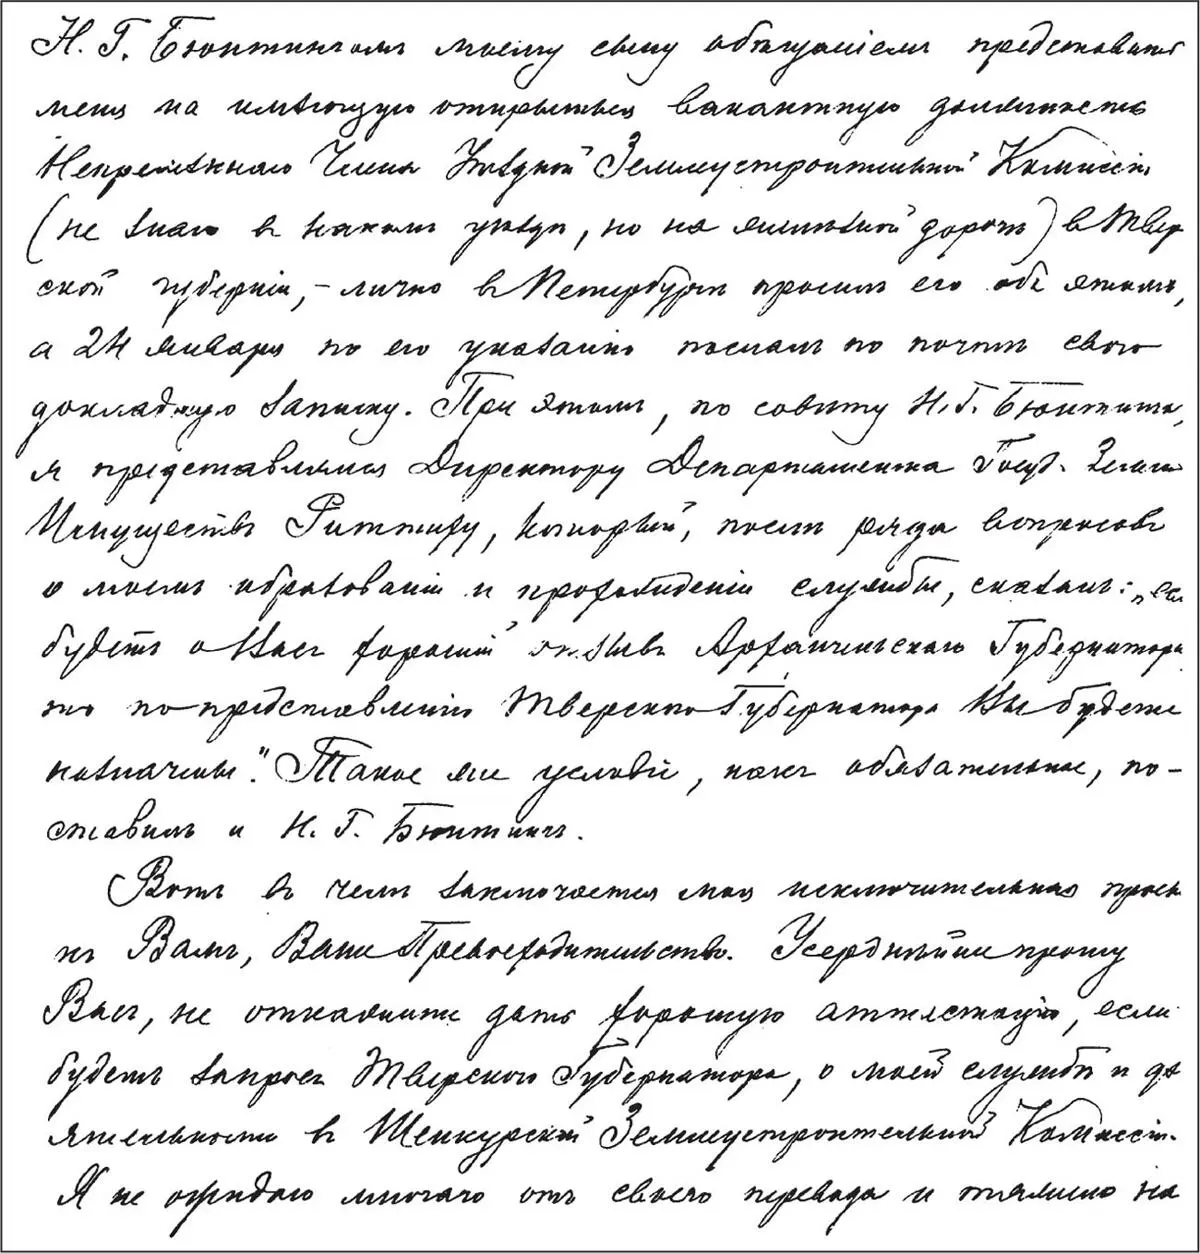 Н. Г. Бюнтингомъ моему сыну обѣщаніемъ представить
меня на имѣющую открыться вакантную должность
Непремѣннаго Члена Уѣздной Землеустроительной Комиссіи
(не знаю въ какомъ уѣздѣ, но на желѣзной дорогѣ) въ Твер
ской губерніи, – лично въ Петербургѣ просилъ его объ этомъ,
а 24 января по его указанію послалъ по почтѣ свою
докладную записку. При этомъ, по совѣту Н. Г. Бюнтинга,
я представлялся Директору Департамента Госуд. Земел.
Имуществъ Риттиху, который, послѣ ряда вопросовъ
о моемъ образованіи и прохожденіи службы, сказалъ: „если
будетъ о Васъ хорошій отзывъ Архангельскаго Губернатора
то по представленію Тверского Губернатора Вы будете
назначены". Такое же условіе, какъ обязательное, по-
ставилъ и Н. Г. Бюнтингъ.
Вотъ въ чемъ заключается моя исключительная просьба
къ Вамъ, Ваше Превосходительство. Усерднѣйше прошу
Васъ, не откажите дать хорошую аттестацію, если
будетъ запросъ Тверского Губернатора, о моей службѣ и дѣ
ятельности въ Шенкурской Землеустроительной Комиссіи.
Я не ожидаю многаго отъ своего перевода и тяжело на